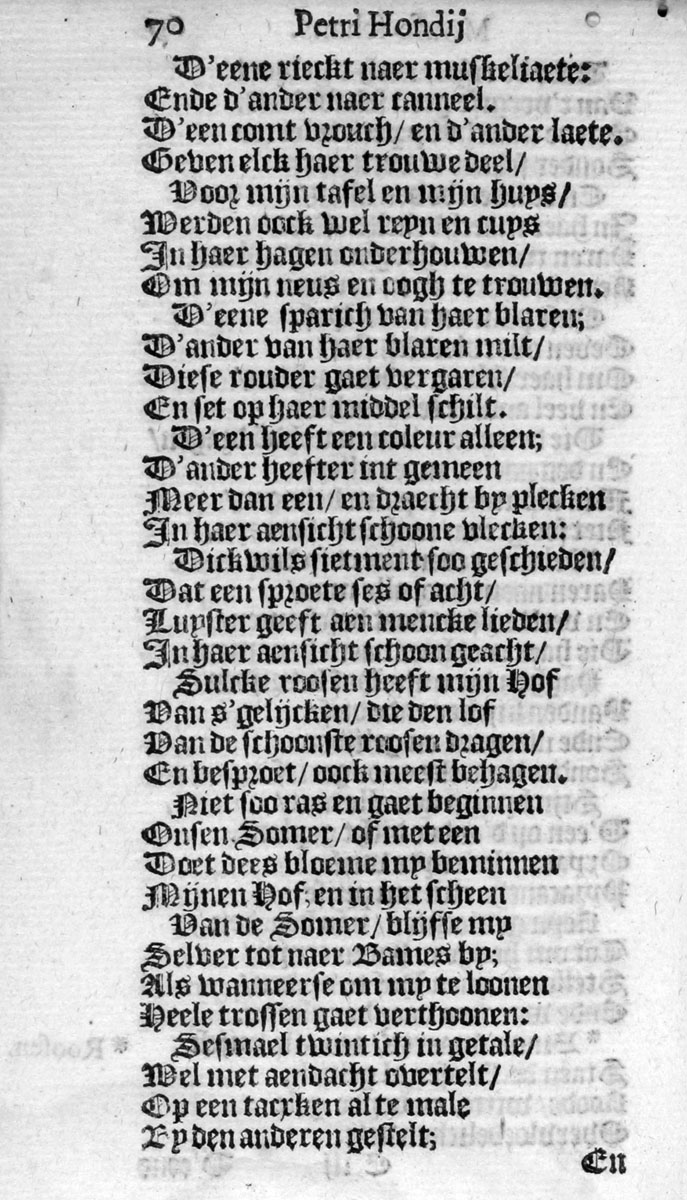 70 Petri Hondij
D'eene rieckt naer muskeliaete:
Ende d'ander naer canneel.
D'een comt vrouch/ en d'ander laete.
Geven elck haer trouwe deel/
Voor mijn tafel en mijn huys/
Werden oock wel reyn en cuys
In haer hagen onderhouwen/
Om mijn neus en oogh te trouwen.
D'eene sparich van haer blaren;
D'ander van haer blaren milt/
Diese rouder gaet vergaren/
En set op haer middel schilt.
D'een heeft een coleur alleen;
D'ander heefter int gemeen
Meer dan een/ en draecht by plecken
In haer aensicht schoone vlecken:
Dickwils sietment soo geschieden/
Dat een sproete ses of acht/
Luyster geeft aen mencke lieden/
In haer aensicht schoon geacht/
Sulcke roosen heeft mijn Hof
Van s'gelijcken/ die den lof
Van de schoonste roosen dragen/
En besproet/ oock meest behagen.
Niet soo ras en gaet beginnen
Onsen Somer/ of met een
Doet dees bloeme my beminnen
Mijnen Hof; en in het scheen
Van de Somer/ blijfse my
Selver tot naer Bames by;
Als wanneerse om my te loonen
Heele trossen gaet verthoonen:
Sesmael twintich in getale/
Wel met aendacht overtelt/
Op een tacxken al te male
By den anderen gestelt;
En